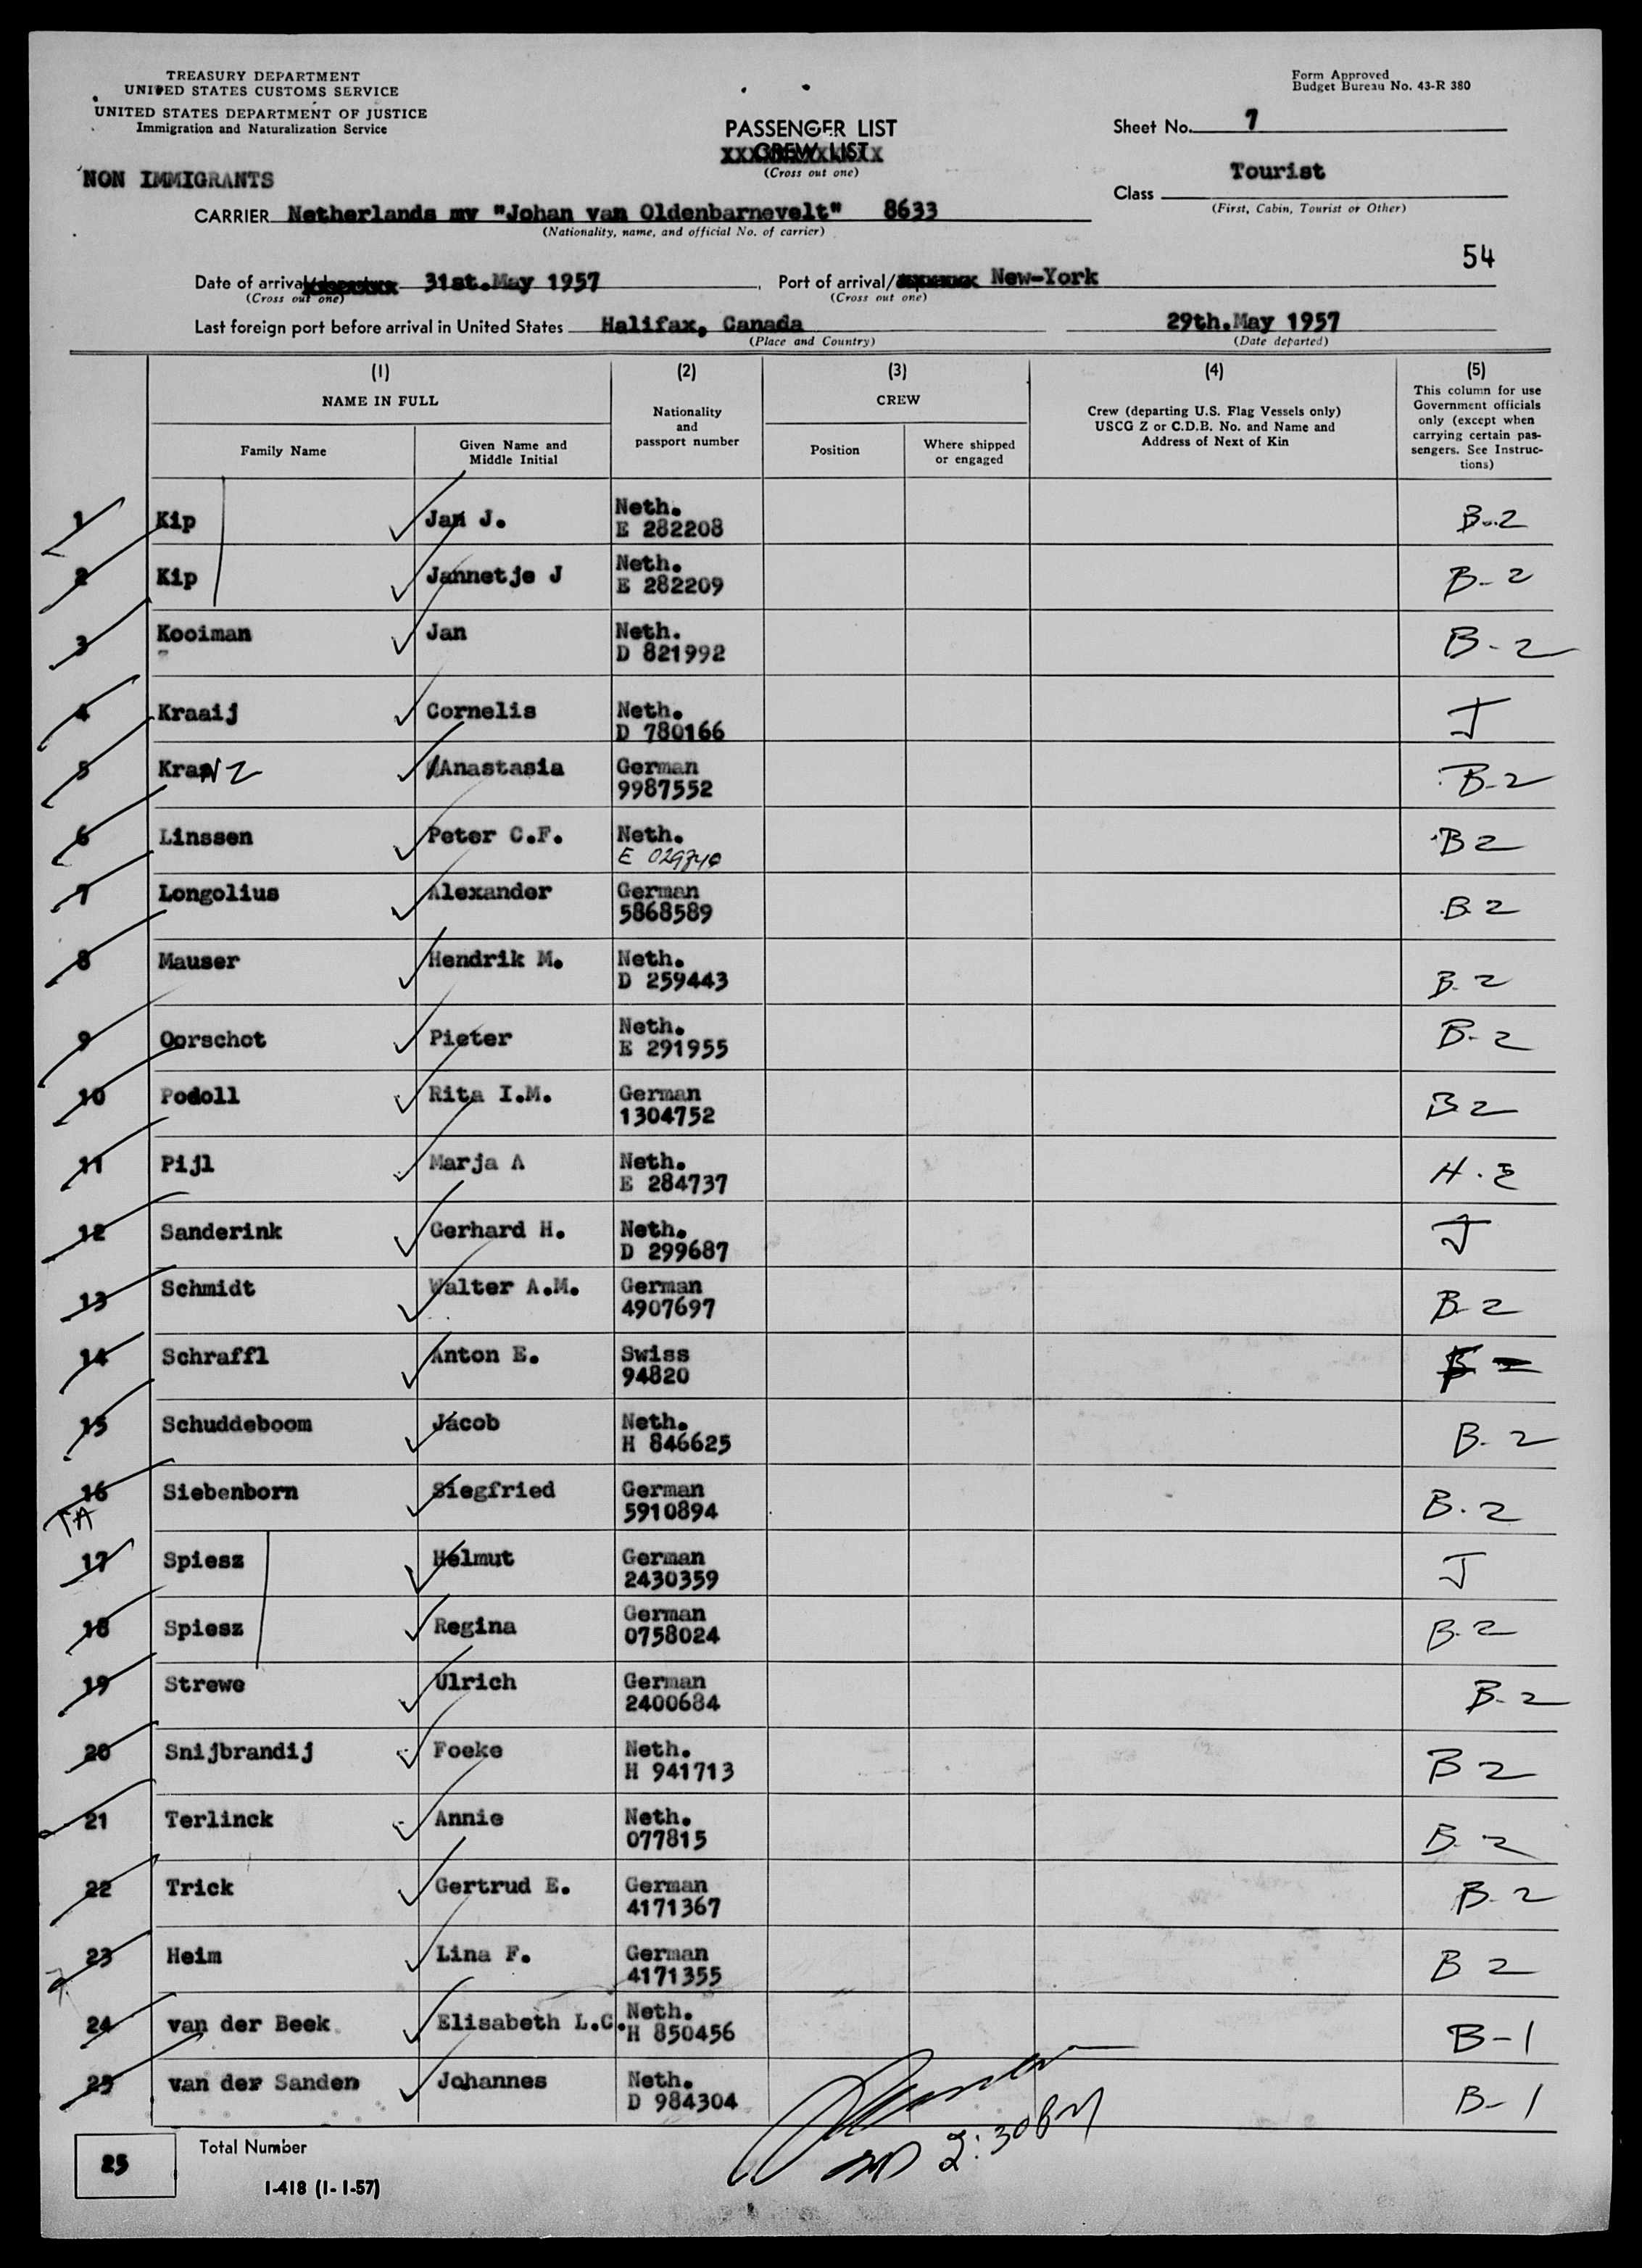 TREASURY DEPARTMENT
UNITED STATES CUSTOMS SERVICE
UNITED STATES DEPARTMENT OF JUSTICE
Immigration and Naturalization Service
Form Approved
Budget Bureau No. 43-R 380
PASSENGER LIST
CREW LIST
(Cross out one)
Sheet No. 7
NON IMMIGRANTS
Class Tourist
(First, Cabin, Tourist or Other)
CARRIER Netherlands mv "Johan van Oldenbarnevelt" 8633
(Nationality, name, and official No. of carrier)
54
Date of arrival 31st.May 1957 Port of arrival/ New-York
(Cross out one) (Cross out one)
Last foreign port before arrival in United States Halifax, Canada 29th.May 1957
(Place and Country) (Date departed)
(1) (2) (3) (4) (5)
NAME IN FULL
Family Name
Given Name and
Middle Initial
Nationality
and
passport number
CREW
Position
Where shipped
or engaged
Crew (departing U.S. Flag Vessels only)
USCG Z or C.D.B. No. and Name and
Address of Next of Kin
This column for use
Government officials
only (except when
carrying certain pas-
sengers. See Instruc-
tions)
1 Kip Jan J. Neth. E 282208 B-2
2 Kip Jannetje J Neth. E 282209 B-2
3 Kooiman Jan Neth. D 821992 B-2
4 Kraaij Cornelis Neth. D 780166 J
5 KraNZ Anastasia German 9987552 B-2
6 Linssen Peter C.F. Neth. E B2
7 Longolius Alexander German 5868589 B2
8 Mauser Hendrik M. Neth. D 259443 B-2
9 Oorschot Pieter Neth. E 291955 B-2
10 Podoll Rita I.M. German 1304752 B2
11 Pijl Marja A Neth. E 284737 H.
12 Sanderink Gerhard H. Neth. D 299687 J
13 Schmidt Walter A.M. German 4907697 B-2
14 Schraffl Anton E. Swiss 94820
15 Schuddeboom Jacob Neth. H 846625 B-2
16 Siebenborn Siegfried German 5910894 B-2
TA
17 Spiesz Helmut German 2430359 J
18 Spiesz Regina German 0758024 B-2
19 Strewe Ulrich German 2400684 B-2
20 Snijbrandij Foeke Neth. H 941713 B2
21 Terlinck Annie Neth. 077815 B-2
22 Trick Gertrud E. German 4171367 B-2
23 Heim Lina F. German 4171355 B2
24 van der Beek Elisabeth L.C. Neth. H 850456 B-1
25 van der Sanden Johannes Neth. D 984304 B-1
25 Total Number
2:30PM
I-418 (1-1-57)